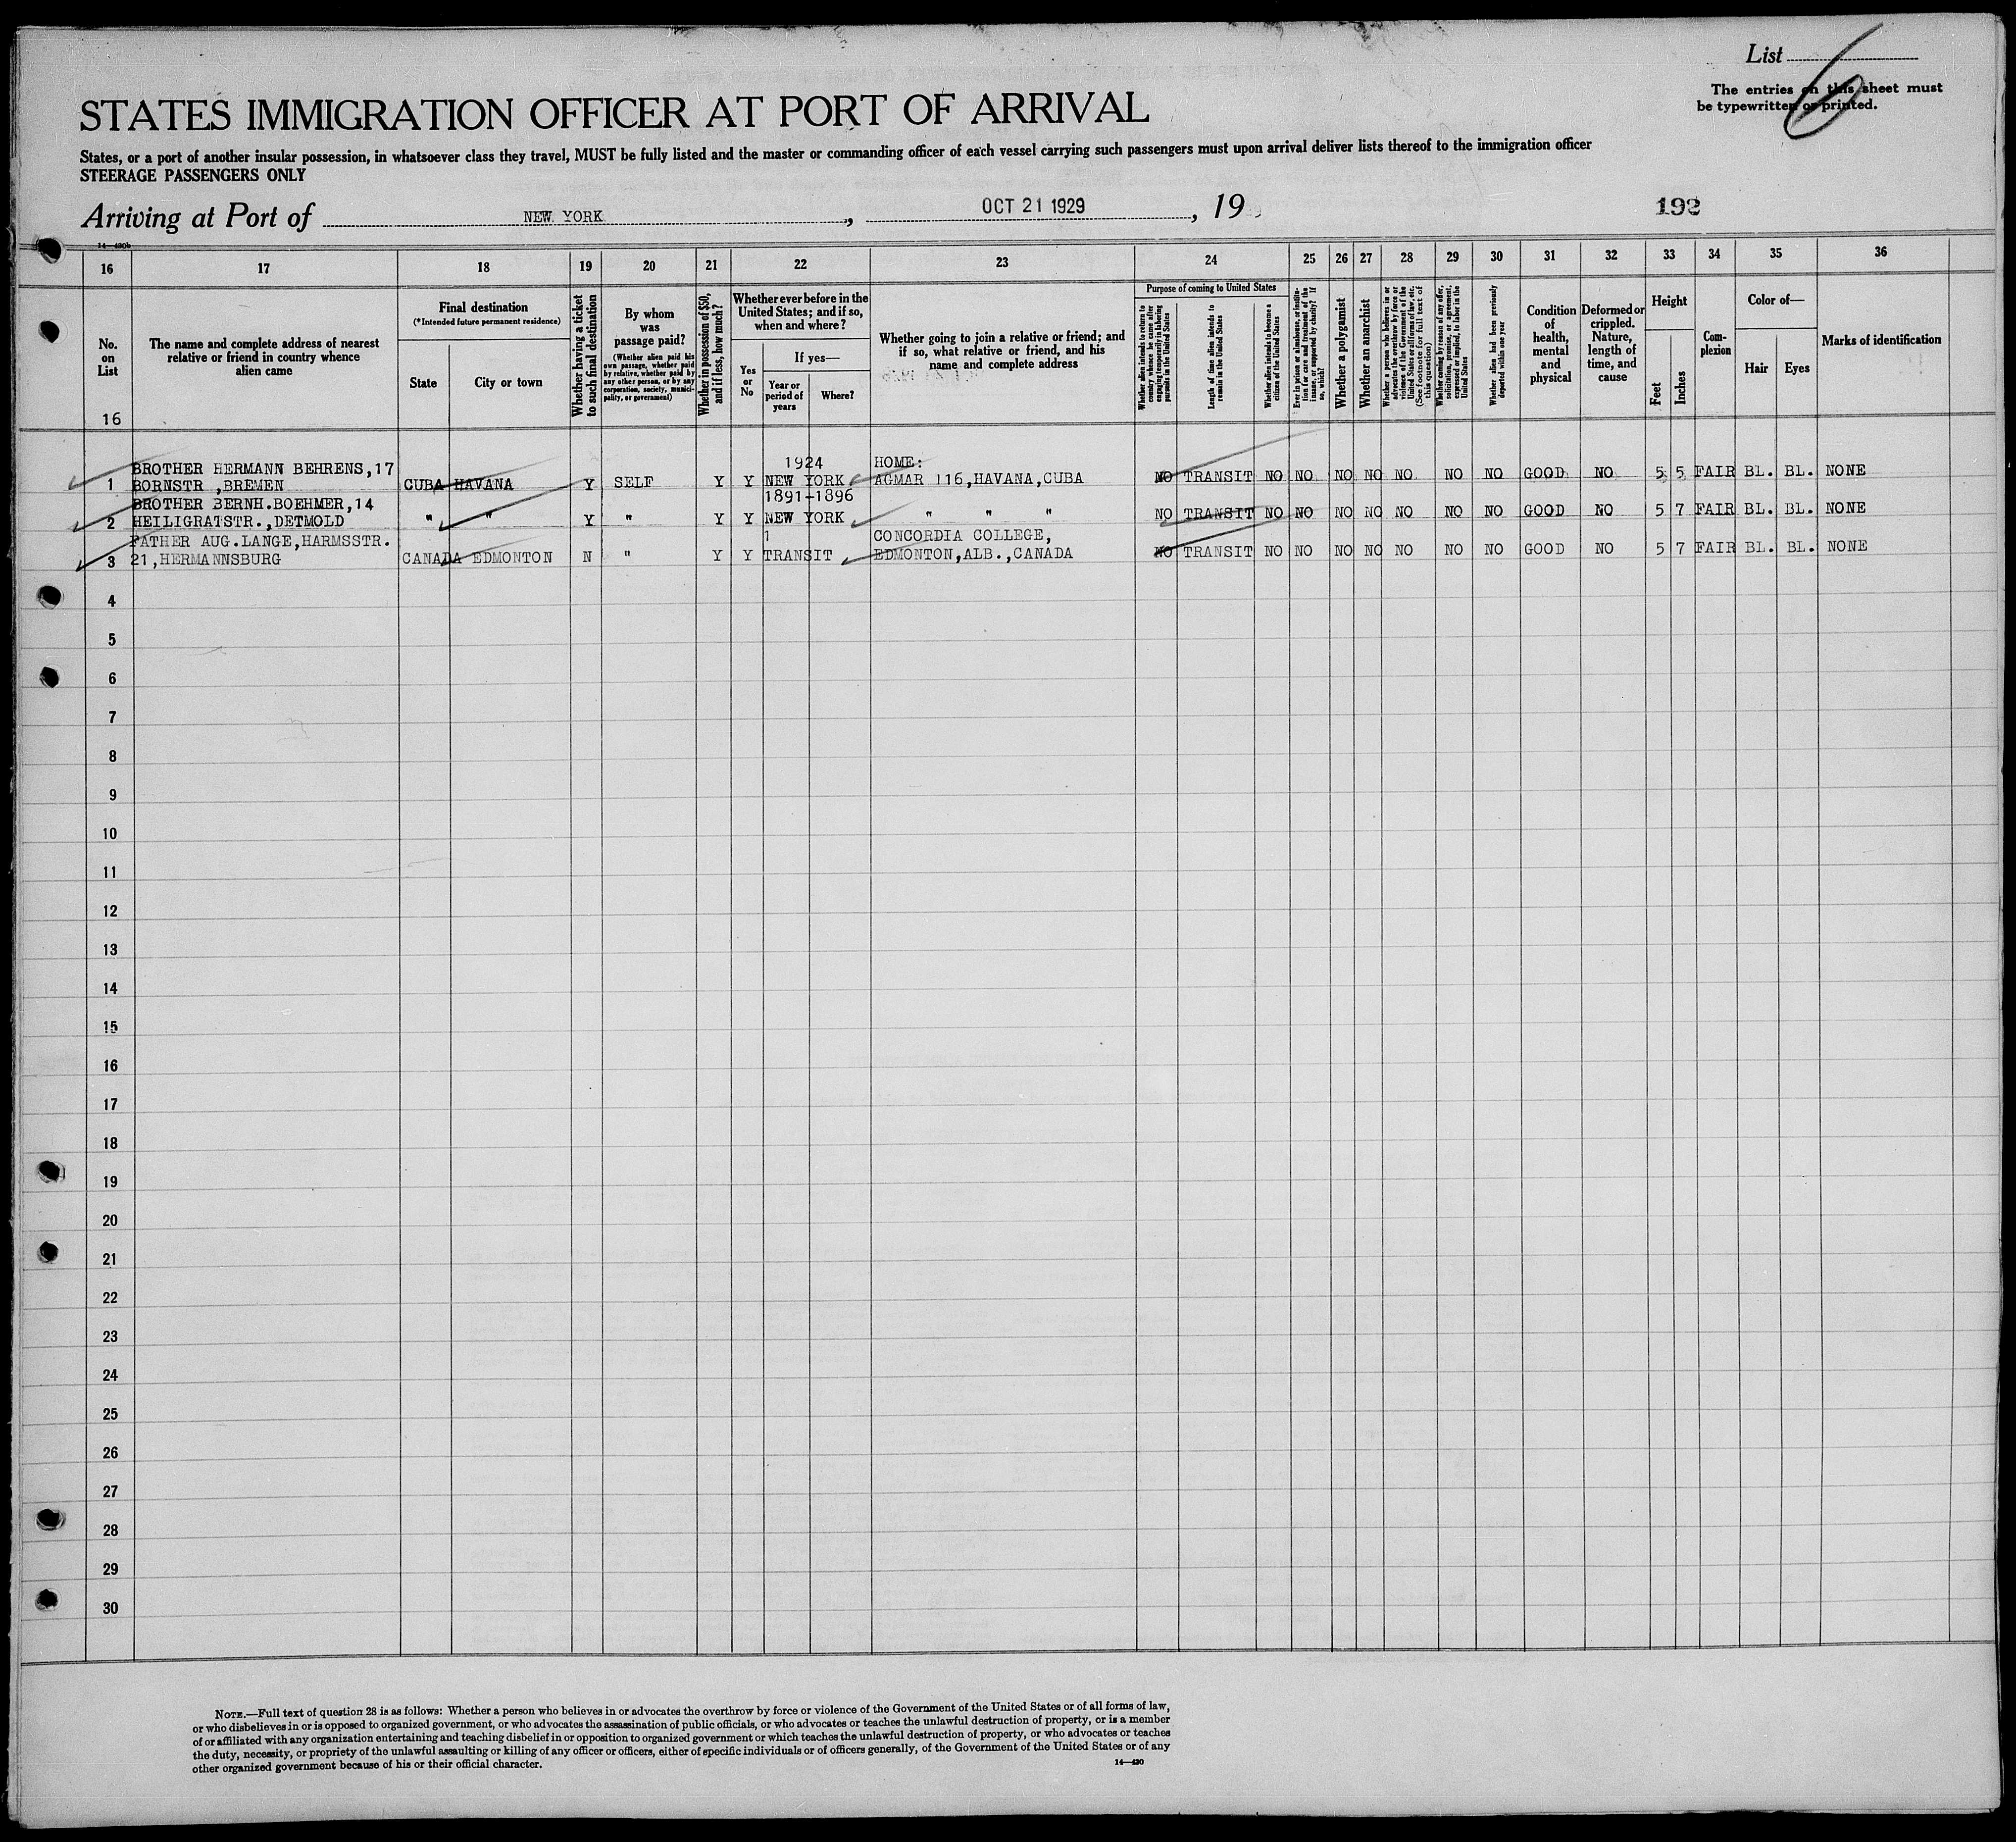 List 6
The entries on this sheet must
be typewritten or printed.
STATES IMMIGRATION OFFICER AT PORT OF ARRIVAL
States, or a port of another insular possession, in whatsoever class they travel, MUST be fully listed and the master or commanding officer of each vessel carrying such passengers must upon arrival deliver lists thereof to the immigration officer
STEERAGE PASSENGERS ONLY
Arriving at Port of NEW YORK, OCT 21 1929, 19
192
14—430b
16 17 18 19 20 21 22 23 24 25 26 27 28 29 30 31 32 33 34 35 36
No.
on
List
16
The name and complete address of nearest
relative or friend in country whence
alien came
Final destination
(*Intended future permanent residence)
State
City or town
Whether having a ticket
to such final destination
By whom
was
passage paid?
(Whether alien paid his
own passage, whether paid
by relative, whether paid by
any other person, or by any
corporation, society, munici-
pality, or government)
Whether in possession of $50,
and if less, how much?
Whether ever before in the
United States; and if so,
when and where?
Yes
or
No
If yes—
Year or
period of
years
Where?
Whether going to join a relative or friend; and
if so, what relative or friend, and his
name and complete address
Purpose of coming to United States
Whether alien intends to return to
country whence he came after
engaging temporarily in laboring
pursuits in the United States
Length of time alien intends to
remain in the United States
Whether alien intends to become a
citizen of the United States
Ever in prison or almshouse, or institu-
tion for care and treatment of the
insane, or supported by charity? If
so, which?
Whether a polygamist
Whether an anarchist
Whether a person who believes in or
advocates the overthrow by force or
violence of the Government of the
United States or all forms of law, etc.
(See footnote for full text of
this question)
Whether coming by reason of any offer,
solicitation, promise, or agreement,
expressed or implied, to labor in the
United States
Whether alien had been previously
deported within one year
Condition
of
health,
mental
and
physical
Deformed or
crippled.
Nature,
length of
time, and
cause
Height
Feet
Inches
Com-
plexion
Color of—
Hair
Eyes
Marks of identification
1924 HOME:
BROTHER HERMANN BEHRENS,17
1 BORNSTR ,BREMEN CUBA HAVANA Y SELF Y Y NEW YORK AGMAR 116,HAVANA,CUBA NO TRANSIT NO NO NO NO NO NO NO GOOD NO 5 5 FAIR BL. BL. NONE
BROTHER BERNH.BOEHMER,14 1891-1896
2 HEILIGRATSTR.,DETMOLD " " Y " Y Y NEW YORK " " " NO TRANSIT NO NO NO NO NO NO NO GOOD NO 5 7 FAIR BL. BL. NONE
FATHER AUG.LANGE,HARMSSTR. CONCORDIA COLLEGE,
3 21,HERMANNSBURG CANADA EDMONTON N " Y Y TRANSIT EDMONTON,ALB.,CANADA NO TRANSIT NO NO NO NO NO NO NO GOOD NO 5 7 FAIR BL. BL. NONE
4
5
6
7
8
9
10
11
12
13
14
15
16
17
18
19
20
21
22
23
24
25
26
27
28
29
30
NOTE.—Full text of question 28 is as follows: Whether a person who believes in or advocates the overthrow by force or violence of the Government of the United States or of all forms of law,
or who disbelieves in or is opposed to organized government, or who advocates the assassination of public officials, or who advocates or teaches the unlawful destruction of property, or is a member
of or affiliated with any organization entertaining and teaching disbelief in or opposition to organized government or which teaches the unlawful destruction of property, or who advocates or teaches
the duty, necessity, or propriety of the unlawful assaulting or killing of any officer or officers, either of specific individuals or of officers generally, of the Government of the United States or of any
other organized government because of his or their official character.
14—430